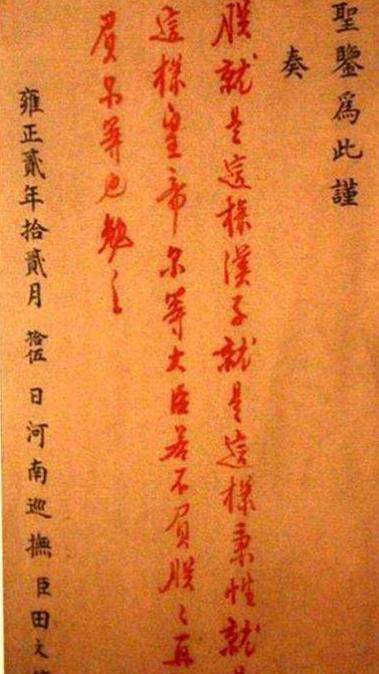 聖鑒爲此謹
奏
朕就是這樣漢子就是這樣秉性就是
這樣皇帝尔等大臣若不負朕朕再
負尔等也勉之
雍正貳年拾貳月拾伍日河南巡撫臣田文